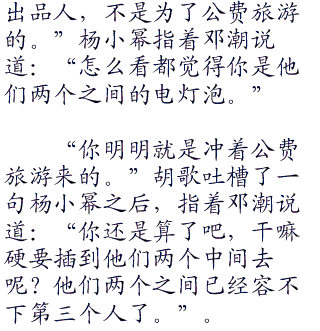 出品人，不是为了公费旅游
的。”杨小幂指着邓潮说
道：“怎么看都觉得你是他
们两个之间的电灯泡。”
“你明明就是冲着公费
旅游来的。”胡歌吐槽了一
句杨小幂之后，指着邓潮说
道：“你还是算了吧，干嘛
硬要插到他们两个中间去
呢？他们两个之间已经容不
下第三个人了。”。